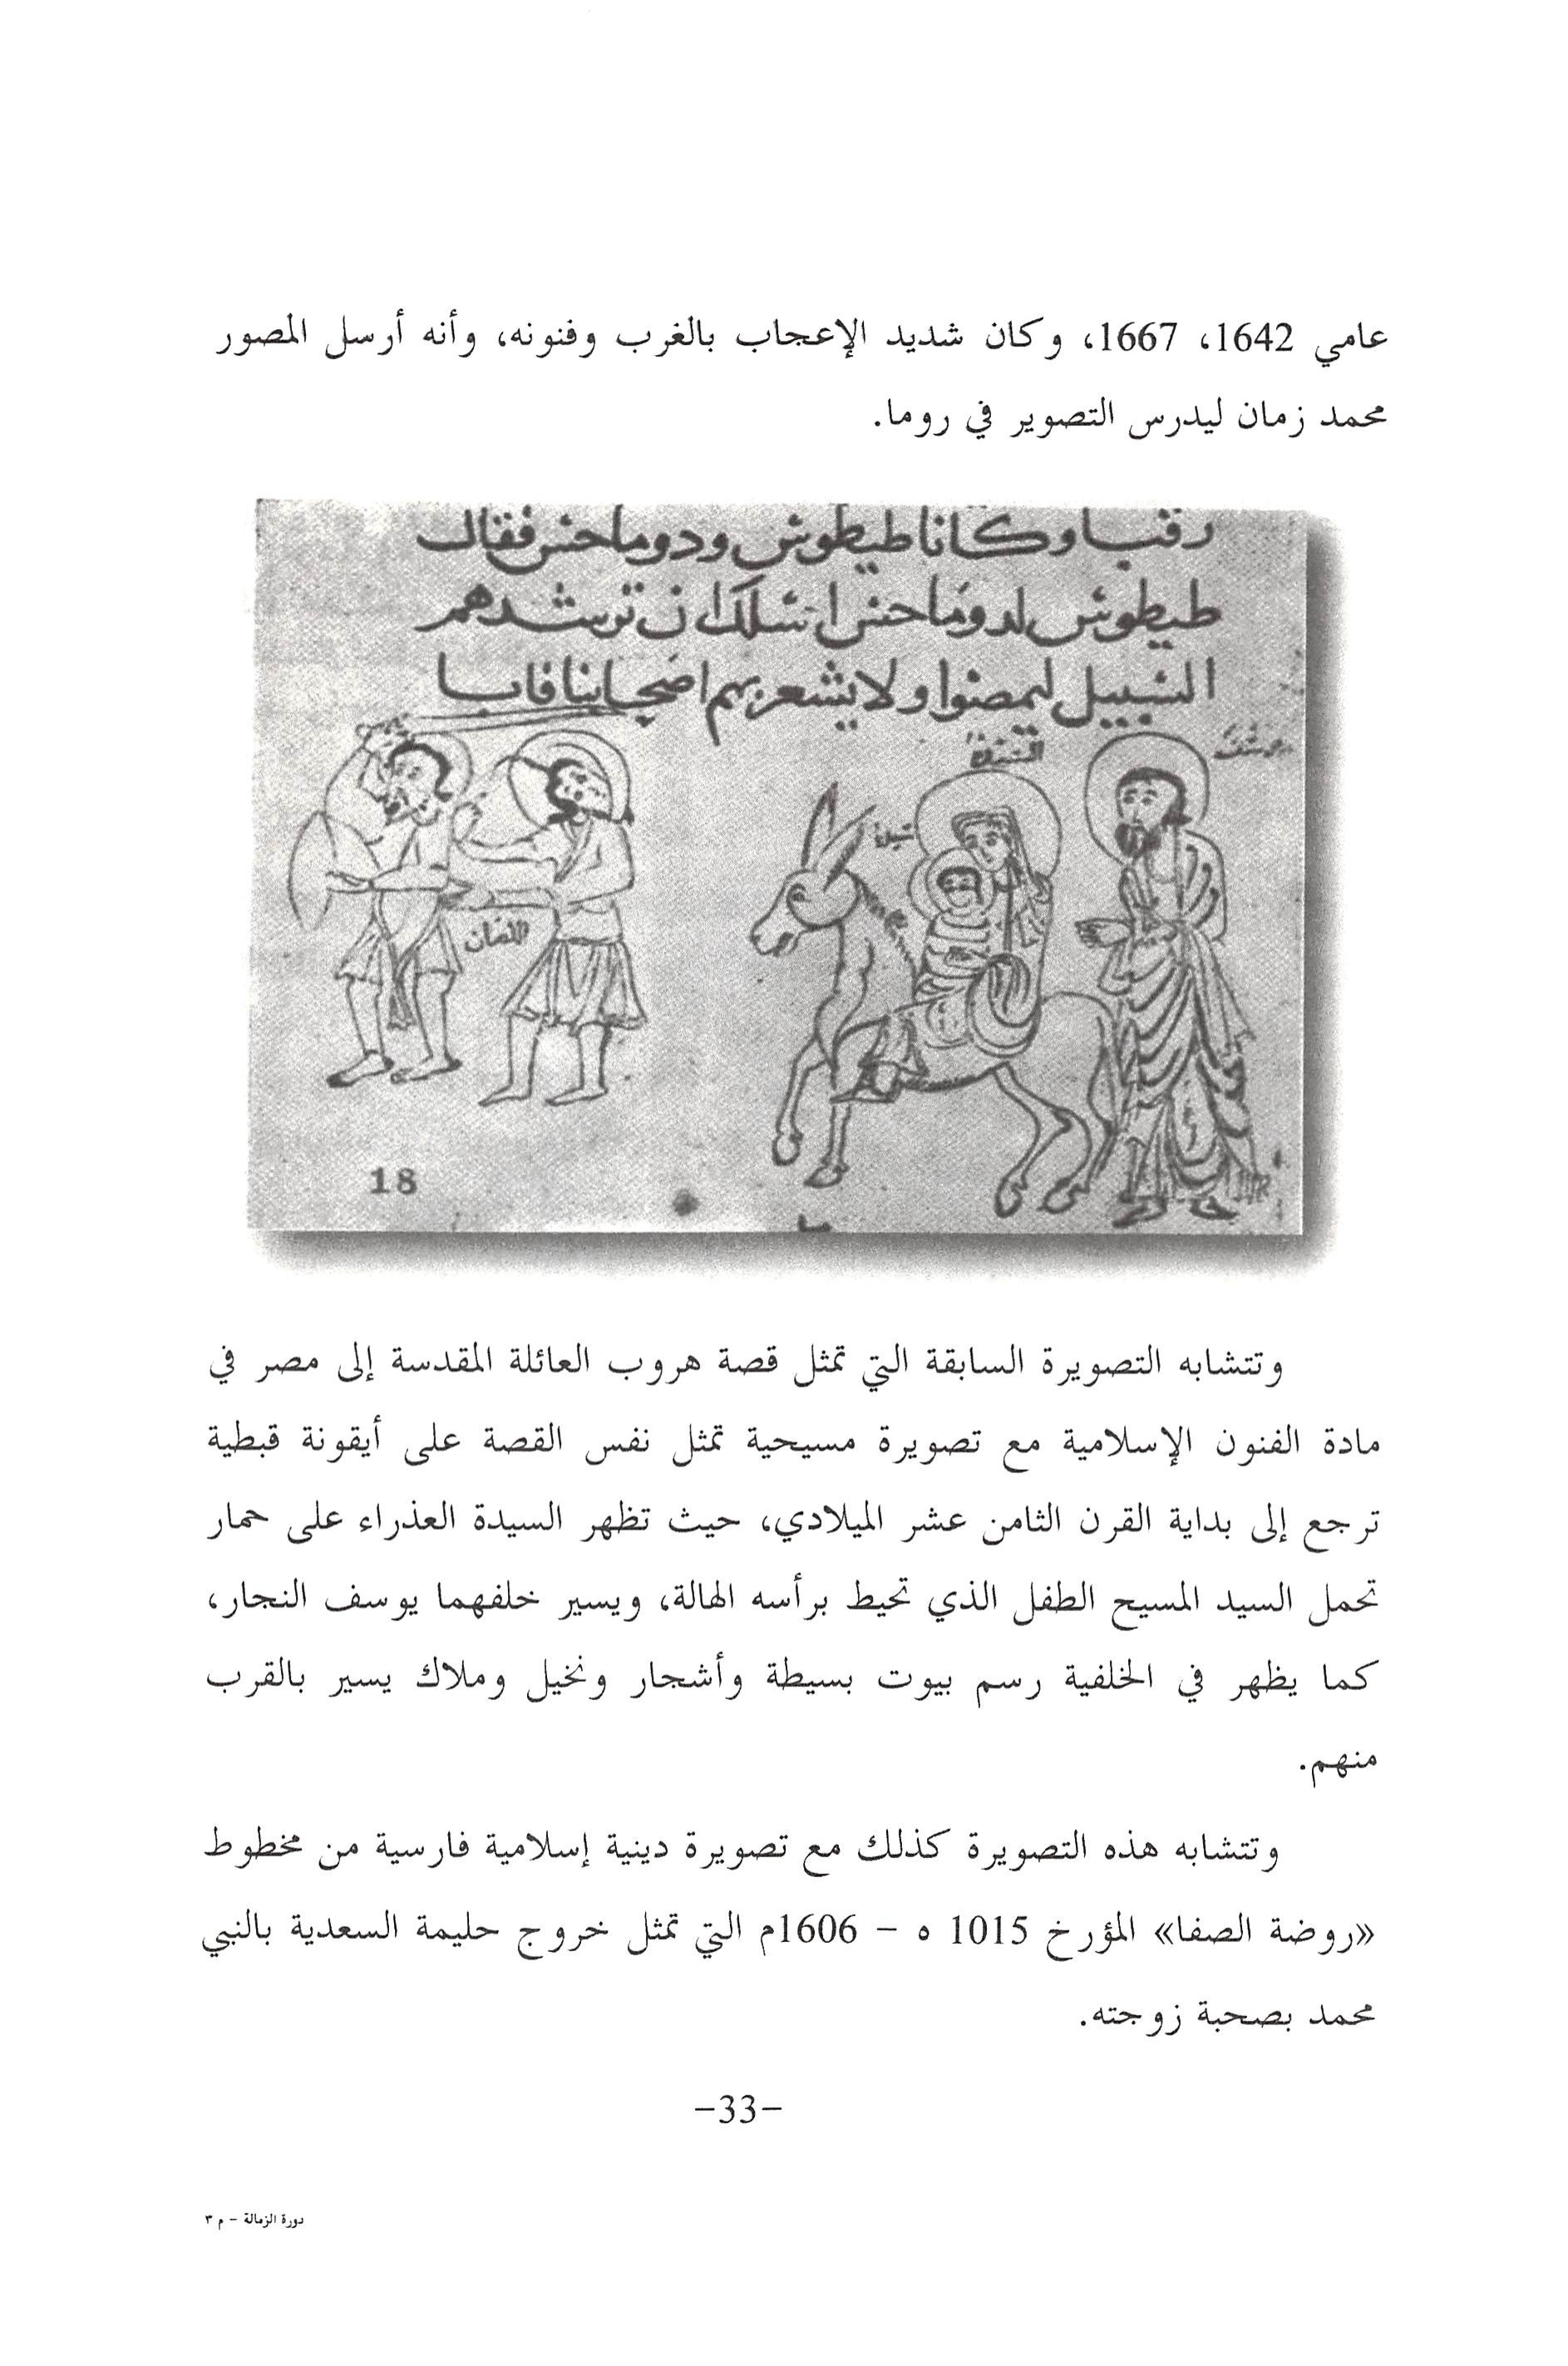 عامي 1642، 1667، وكان شديد الإعجاب بالغرب وفنونه، وأنه أرسل المصور
محمد زمان ليدرس التصوير في روما.
رقبا وكانا طيطوش ودوماحش فقال
طيطوش لدوماحش اسلك ان ترشدهم
السبيل ليمضوا ولا يشعر بهم اصحابنا فابا
يوسف
السيدة
سيدنا
اللصان
18
وتتشابه التصويرة السابقة التي تمثل قصة هروب العائلة المقدسة إلى مصر في
مادة الفنون الإسلامية مع تصويرة مسيحية تمثل نفس القصة على أيقونة قبطية
ترجع إلى بداية القرن الثامن عشر الميلادي، حيث تظهر السيدة العذراء على حمار
تحمل السيد المسيح الطفل الذي تحيط برأسه الهالة، ويسير خلفهما يوسف النجار،
كما يظهر في الخلفية رسم بيوت بسيطة وأشجار ونخيل وملاك يسير بالقرب
منهم.
وتتشابه هذه التصويرة كذلك مع تصويرة دينية إسلامية فارسية من مخطوط
«روضة الصفا» المؤرخ 1015 ه - 1606م التي تمثل خروج حليمة السعدية بالنبي
محمد بصحبة زوجته.
-33-
دورة الزمالة - م ٣